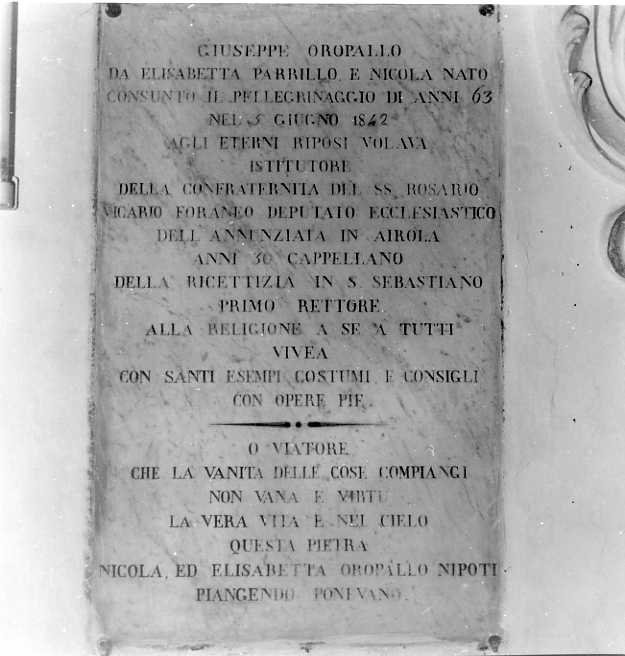 GIUSEPPE OROPALLO
DA ELISABETTA PARRILLO E NICOLA NATO
CONSUNTO IL PELLEGRINAGGIO DI ANNI 63
NEL 5 GIUGNO 1842
AGLI ETERNI RIPOSI VOLAVA
ISTITUTORE
DELLA CONFRATERNITA DEL SS. ROSARIO
VICARIO FORANEO DEPUTATO ECCLESIASTICO
DELL ANNUNZIATA IN AIROLA
ANNI 30 CAPPELLANO
DELLA RICETTIZIA IN S. SEBASTIANO
PRIMO RETTORE
ALLA RELIGIONE A SE A TUTTI
VIVEA
CON SANTI ESEMPI COSTUMI E CONSIGLI
CON OPERE PIE.
O VIATORE
CHE LA VANITA DELLE COSE COMPIANGI
NON VANA E VIRTU
LA VERA VITA E NEL CIELO
QUESTA PIETRA
NICOLA, ED ELISABETTA OROPALLO NIPOTI
PIANGENDO PONEVANO.